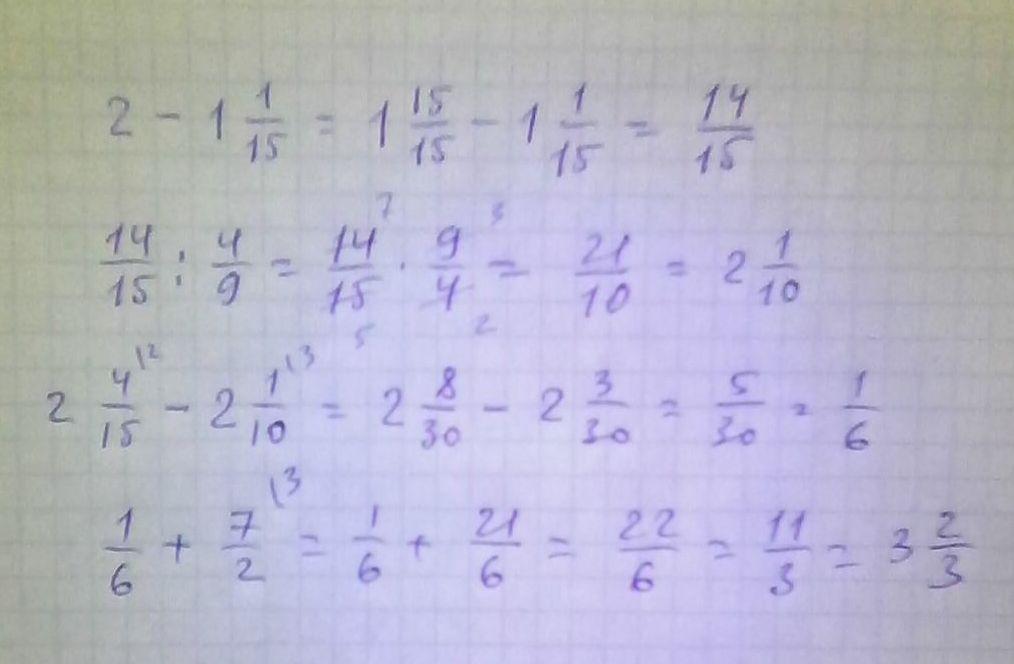 2 - 1 1/15 = 1 15/15 - 1 1/15 = 14/15
14/15 : 4/9 = 14⁷/15₅ · 9³/4₂ = 21/10 = 2 1/10
2 4/15 \2 - 2 1/10 \3 = 2 8/30 - 2 3/30 = 5/30 = 1/6
1/6 + 7/2 \3 = 1/6 + 21/6 = 22/6 = 11/3 = 3 2/3